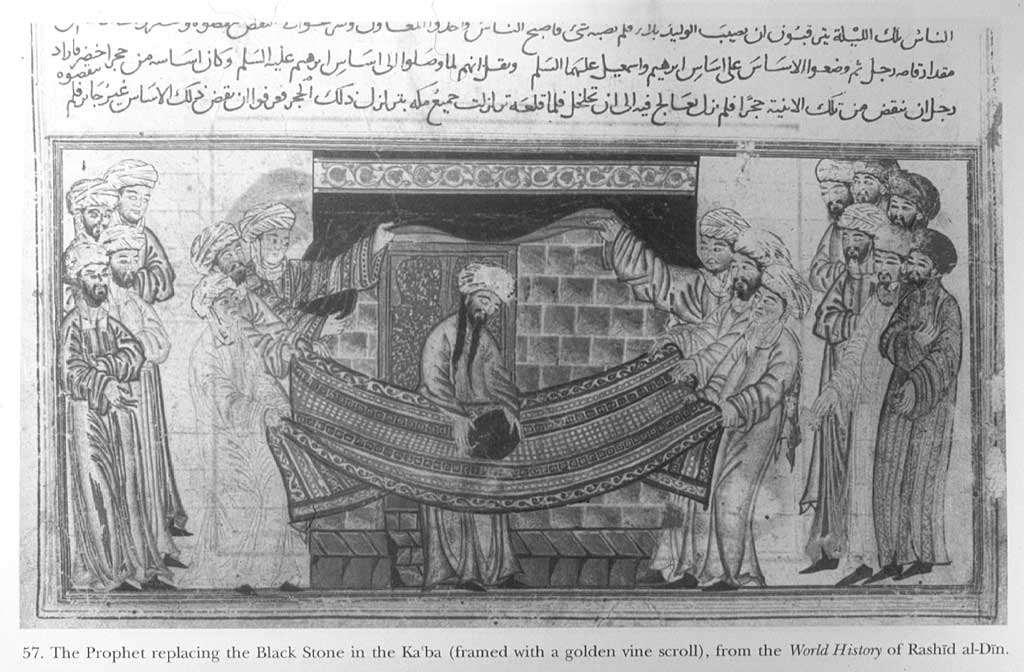 الناس تلك الليلة يترقبون ان يصيب الوليد بلاء فلم يصبه شئ فاصبح الناس واخذوا
مقدار قامه رجل ثم وضعوا الاساس على اساس ابرهيم واسمعيل عليهما السلم ونقل انهم لما وصلوا الى اساس ابرهيم عليه السلم وكان اساسه من حجر اخضر فاراد
رجل ان ينقض من تلك الابنية حجرا فلم يزل يعالج فيه الى ان تخلخل فلما قلعه تزلزلت جميع مكه بتزلزل ذلك الحجر فعرفوا ان نقض ذلك الاساس غير جايز فلم
57. The Prophet replacing the Black Stone in the Ka'ba (framed with a golden vine scroll), from the World History of Rashīd al-Dīn.